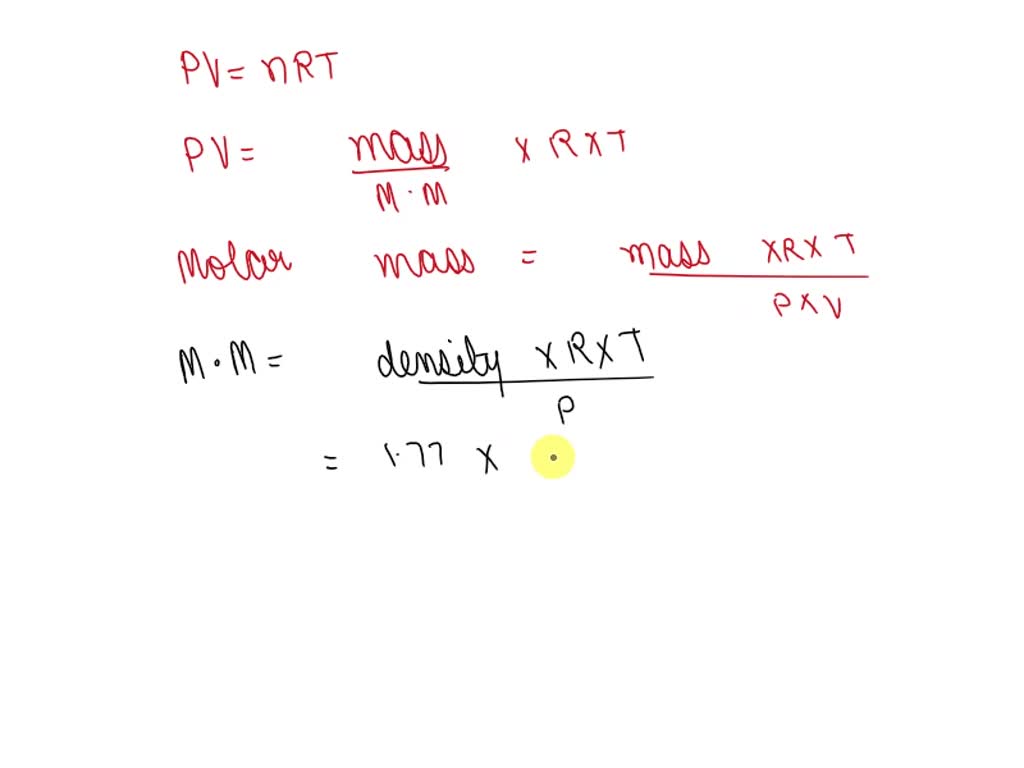 PV = nRT
PV = mass / M·M × R × T
Molar mass = mass × R × T / P × V
M·M = density × R × T / P
= 1.77 ×